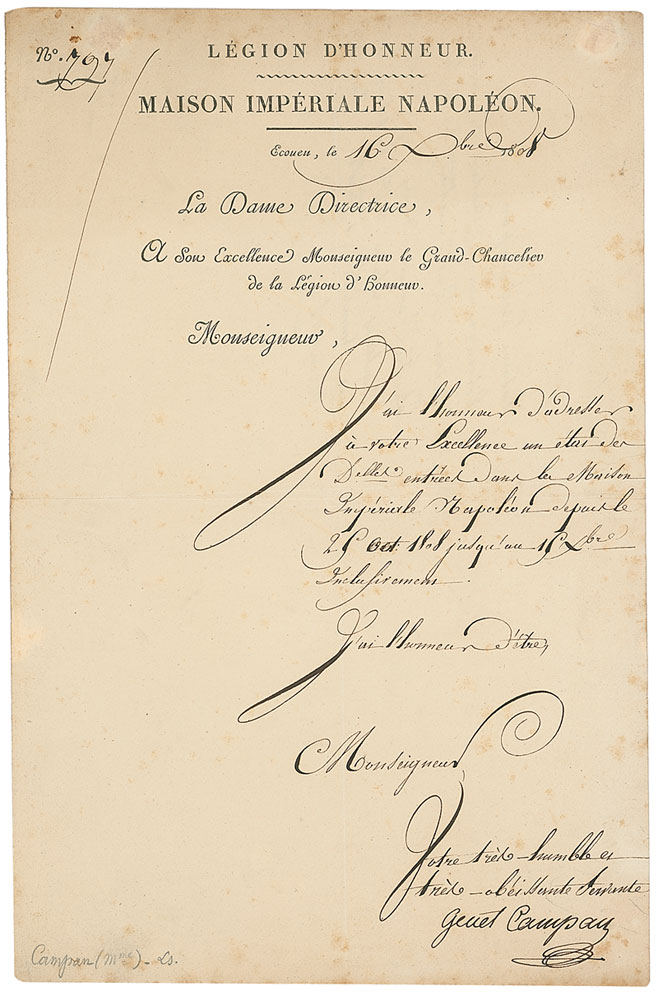 Nº. 797
LÉGION D'HONNEUR.
MAISON IMPÉRIALE NAPOLÉON.
Ecouen, le 16 Xbre 1808
La Dame Directrice,
A Son Excellence Monseigneur le Grand-Chancelier
de la Légion d'Honneur.
Monseigneur,
J'ai l'honneur d'adresser
à votre Excellence un état des
Delles entrées dans la Maison
Impériale Napoléon depuis le
25 Oct. 1808 jusqu'au 15 Xbre
Inclusivement.
J'ai l'honneur d'être,
Monseigneur
Votre très-humble et
très-obéissante Servante
Genet Campan
Campan (Mme) - Ls.